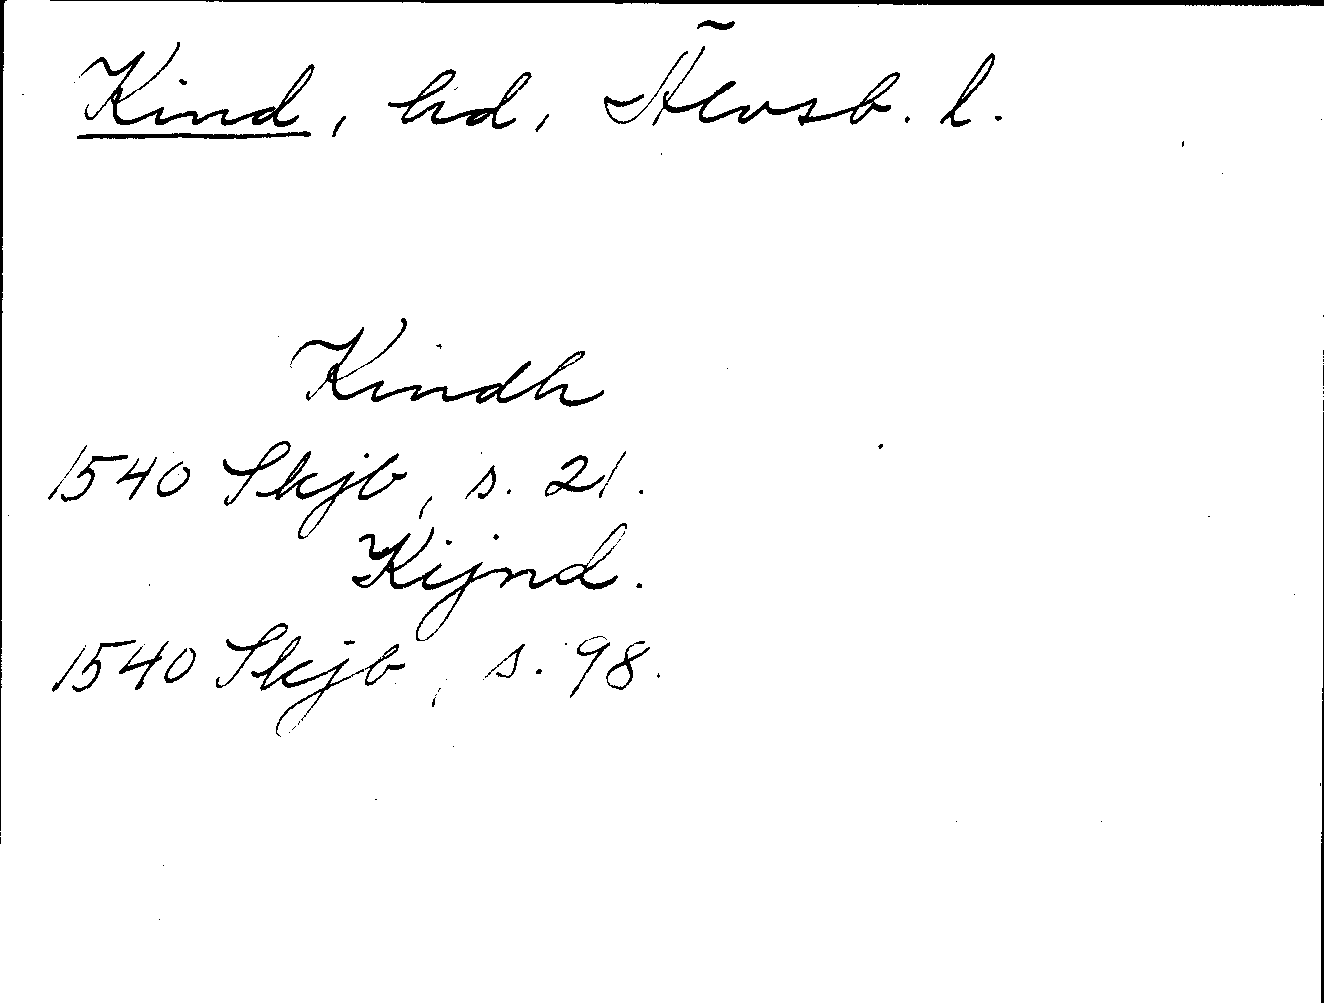 Kind, hd, Älvsb. l.
Kindh
1540 Skjb, s. 21.
Kijnd.
1540 Skjb, s. 98.